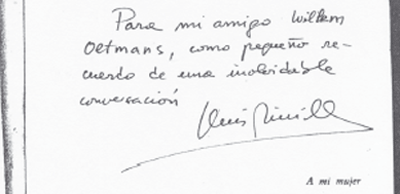 Para mi amigo Willem
Oltmans, como pequeño re-
cuerdo de una inolvidable
conversación
Luis
A mi mujer